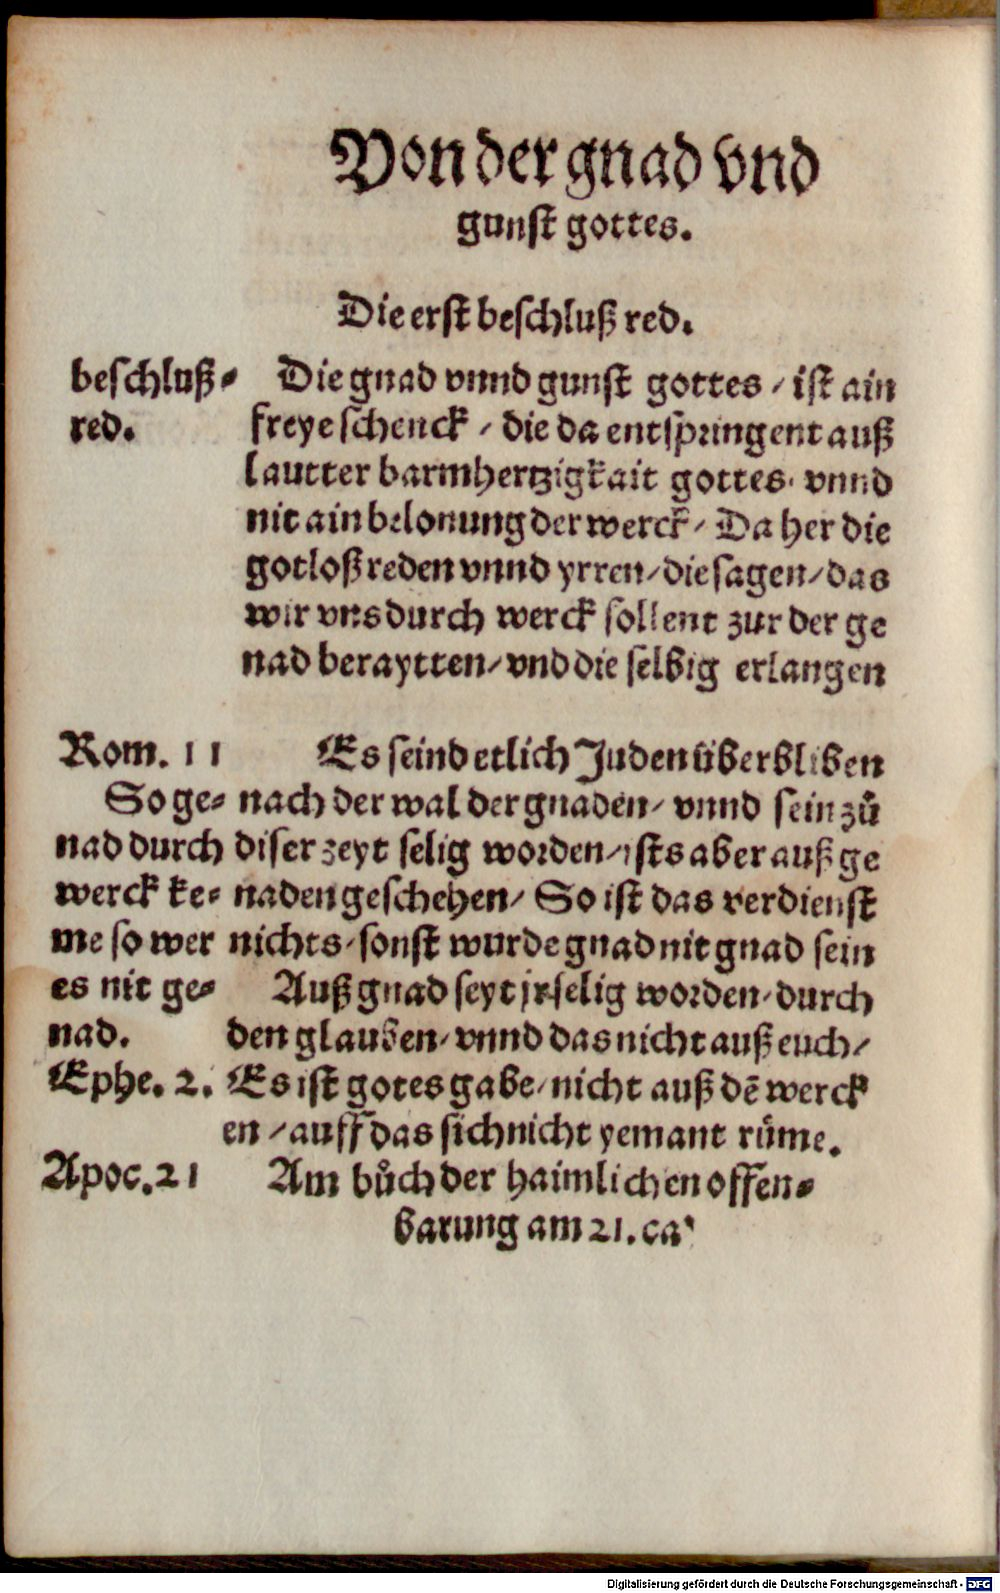 Von der gnad vnd
gunst gottes.
Die erst beschluß red.
beschluß⸗
red.
Die gnad vnnd gunst gottes / ist ain
freye schenck / die da entspringent auß
lautter barmhertzigkait gottes. vnnd
nit ain belonung der werck / Da her die
gotloß reden vnnd yrren / die sagen / das
wir vns durch werck sollent zur der ge
nad beraytten / vnd die selbig erlangen
Rom. 11
So ge⸗
nad durch
werck ke⸗
me so wer
es nit ge⸗
nad.
Es seind etlich Juden überbliben
nach der wal der gnaden / vnnd sein zů
diser zeyt selig worden / ists aber auß ge
naden geschehen / So ist das verdienst
nichts / sonst wurde gnad nit gnad sein
Auß gnad seyt jr selig worden / durch
den glauben / vnnd das nicht auß euch /
Ephe. 2.
Es ist gotes gabe / nicht auß dē werck
en / auff das sich nicht yemant rüme.
Apoc. 21
Am bůch der haimlichen offen⸗
barung am 21. ca'
Digitalisierung gefördert durch die Deutsche Forschungsgemeinschaft - DFG